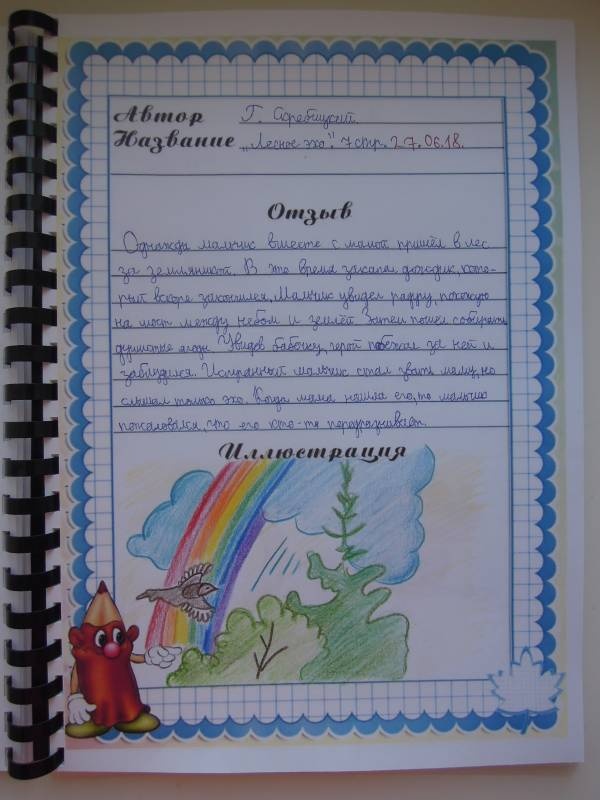 Автор Г. Скребицкий.
Название „Лесное эхо". 7 стр. 27.06.18.
Отзыв
Однажды мальчик вместе с мамой пришёл в лес
за земляникой. В это время закапал дождик, кото-
рый вскоре закончился. Мальчик увидел радугу, похожую
на мост между небом и землёй. Затем пошёл собирать
душистые ягоды. Увидев бабочку, герой побежал за ней и
заблудился. Испуганный мальчик стал звать маму, но
слышал только эхо. Когда мама нашла его, то мальчик
пожаловался, что его кто-то передразнивает.
Иллюстрация